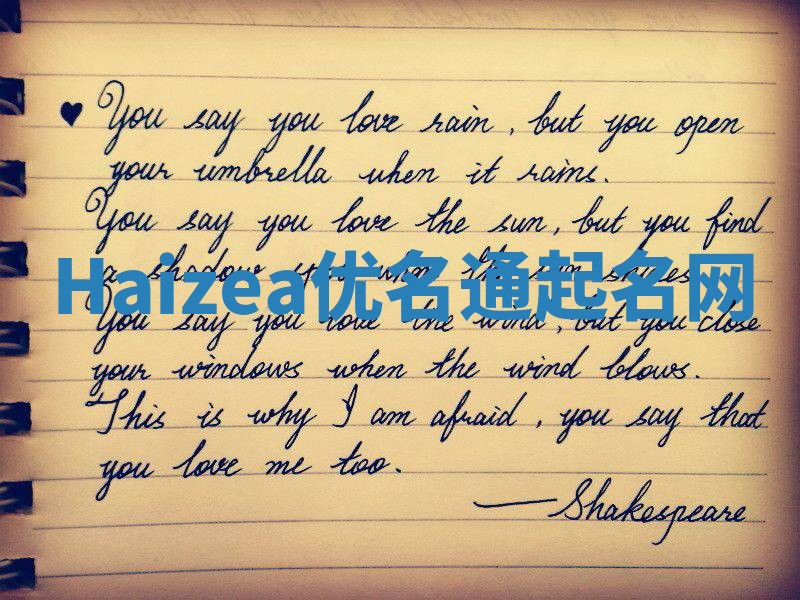 ♥ You say you love rain, but you open
your umbrella when it rains.
You say you love the sun, but you find
a shadow spot when the sun shines.
Haizea优名通起名网
You say you love the wind, but you close
your windows when the wind blows.
This is why I am afraid, you say that
you love me too.
— Shakespeare